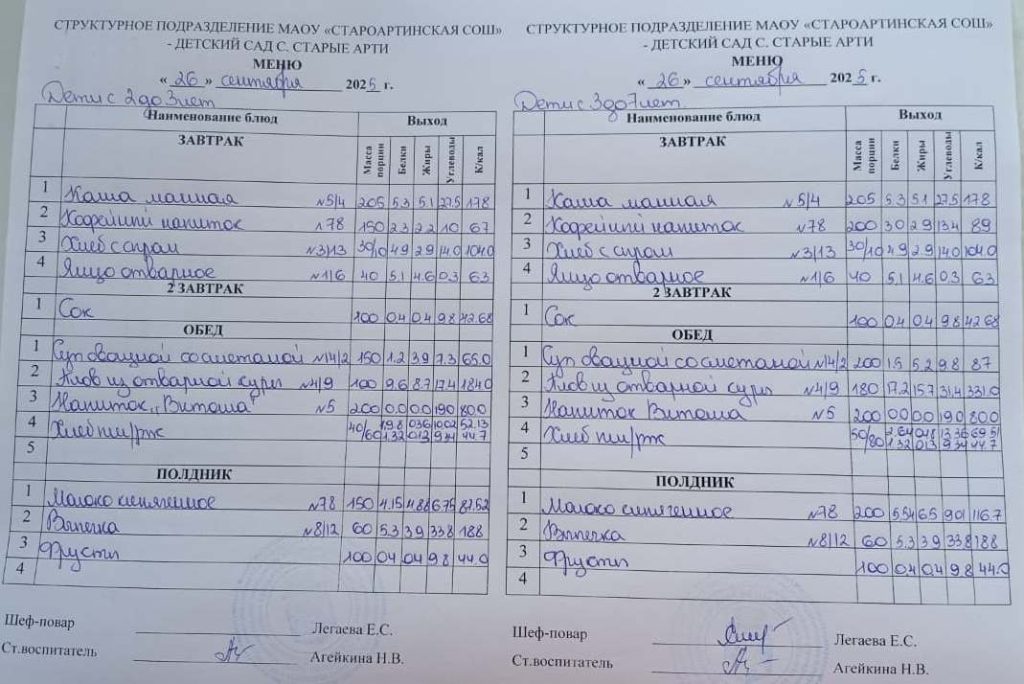 СТРУКТУРНОЕ ПОДРАЗДЕЛЕНИЕ МАОУ «СТАРОАРТИНСКАЯ СОШ»
- ДЕТСКИЙ САД С. СТАРЫЕ АРТИ
МЕНЮ
« 26 » сентября 2025 г.
Дети с 2 до 3 лет
Наименование блюд Выход
ЗАВТРАК Масса порции Белки Жиры Углеводы К/кал
1 Каша манная №5/4 205 5.3 5.1 27.5 178
2 Кофейный напиток №78 150 2.3 2.2 10 67
3 Хлеб с сыром №3/13 30/10 4.9 2.9 14.0 104.0
4 Яйцо отварное №1/6 40 5.1 4.6 0.3 63
2 ЗАВТРАК
1 Сок 100 0.4 0.4 9.8 42.68
ОБЕД
1 Суп овощной со сметаной №14/2 150 1.2 3.9 7.3 65.0
2 Плов из отварной куры №4/9 100 9.6 8.7 17.4 184.0
3 Напиток „Витоша" №5 200 0.0 0.0 19.0 80.0
4 Хлеб пш/рж 40/60 1.98 0.36 10.02 52.13
1.32 0.13 9.34 44.7
5
ПОЛДНИК
1 Молоко кипяченное №78 150 4.15 4.88 6.75 87.52
2 Выпечка №8/12 60 5.3 3.9 33.8 188
3 Фрукты 100 0.4 0.4 9.8 44.0
4
Шеф-повар Легаева Е.С.
Ст.воспитатель Агейкина Н.В.
СТРУКТУРНОЕ ПОДРАЗДЕЛЕНИЕ МАОУ «СТАРОАРТИНСКАЯ СОШ»
- ДЕТСКИЙ САД С. СТАРЫЕ АРТИ
МЕНЮ
« 26 » сентября 2025 г.
Дети с 3 до 7 лет.
Наименование блюд Выход
ЗАВТРАК Масса порции Белки Жиры Углеводы К/кал
1 Каша манная №5/4 205 5.3 5.1 27.5 178
2 Кофейный напиток №78 200 3.0 2.9 13.4 89
3 Хлеб с сыром №3/13 30/10 4.9 2.9 14.0 104.0
4 Яйцо отварное №1/6 40 5.1 4.6 0.3 63
2 ЗАВТРАК
1 Сок 100 0.4 0.4 9.8 42.68
ОБЕД
1 Суп овощной со сметаной №14/2 200 1.5 5.2 9.8 87
2 Плов из отварной куры №4/9 180 17.2 15.7 31.4 331.0
3 Напиток Витоша №5 200 0.0 0.0 19.0 80.0
4 Хлеб пш/рж 50/80 2.64 0.48 13.36 69.51
1.32 0.13 9.34 44.7
5
ПОЛДНИК
1 Молоко кипяченное №78 200 5.54 6.5 9.01 116.7
2 Выпечка №8/12 60 5.3 3.9 33.8 188
3 Фрукты 100 0.4 0.4 9.8 44.0
4
Шеф-повар Легаева Е.С.
Ст.воспитатель Агейкина Н.В.